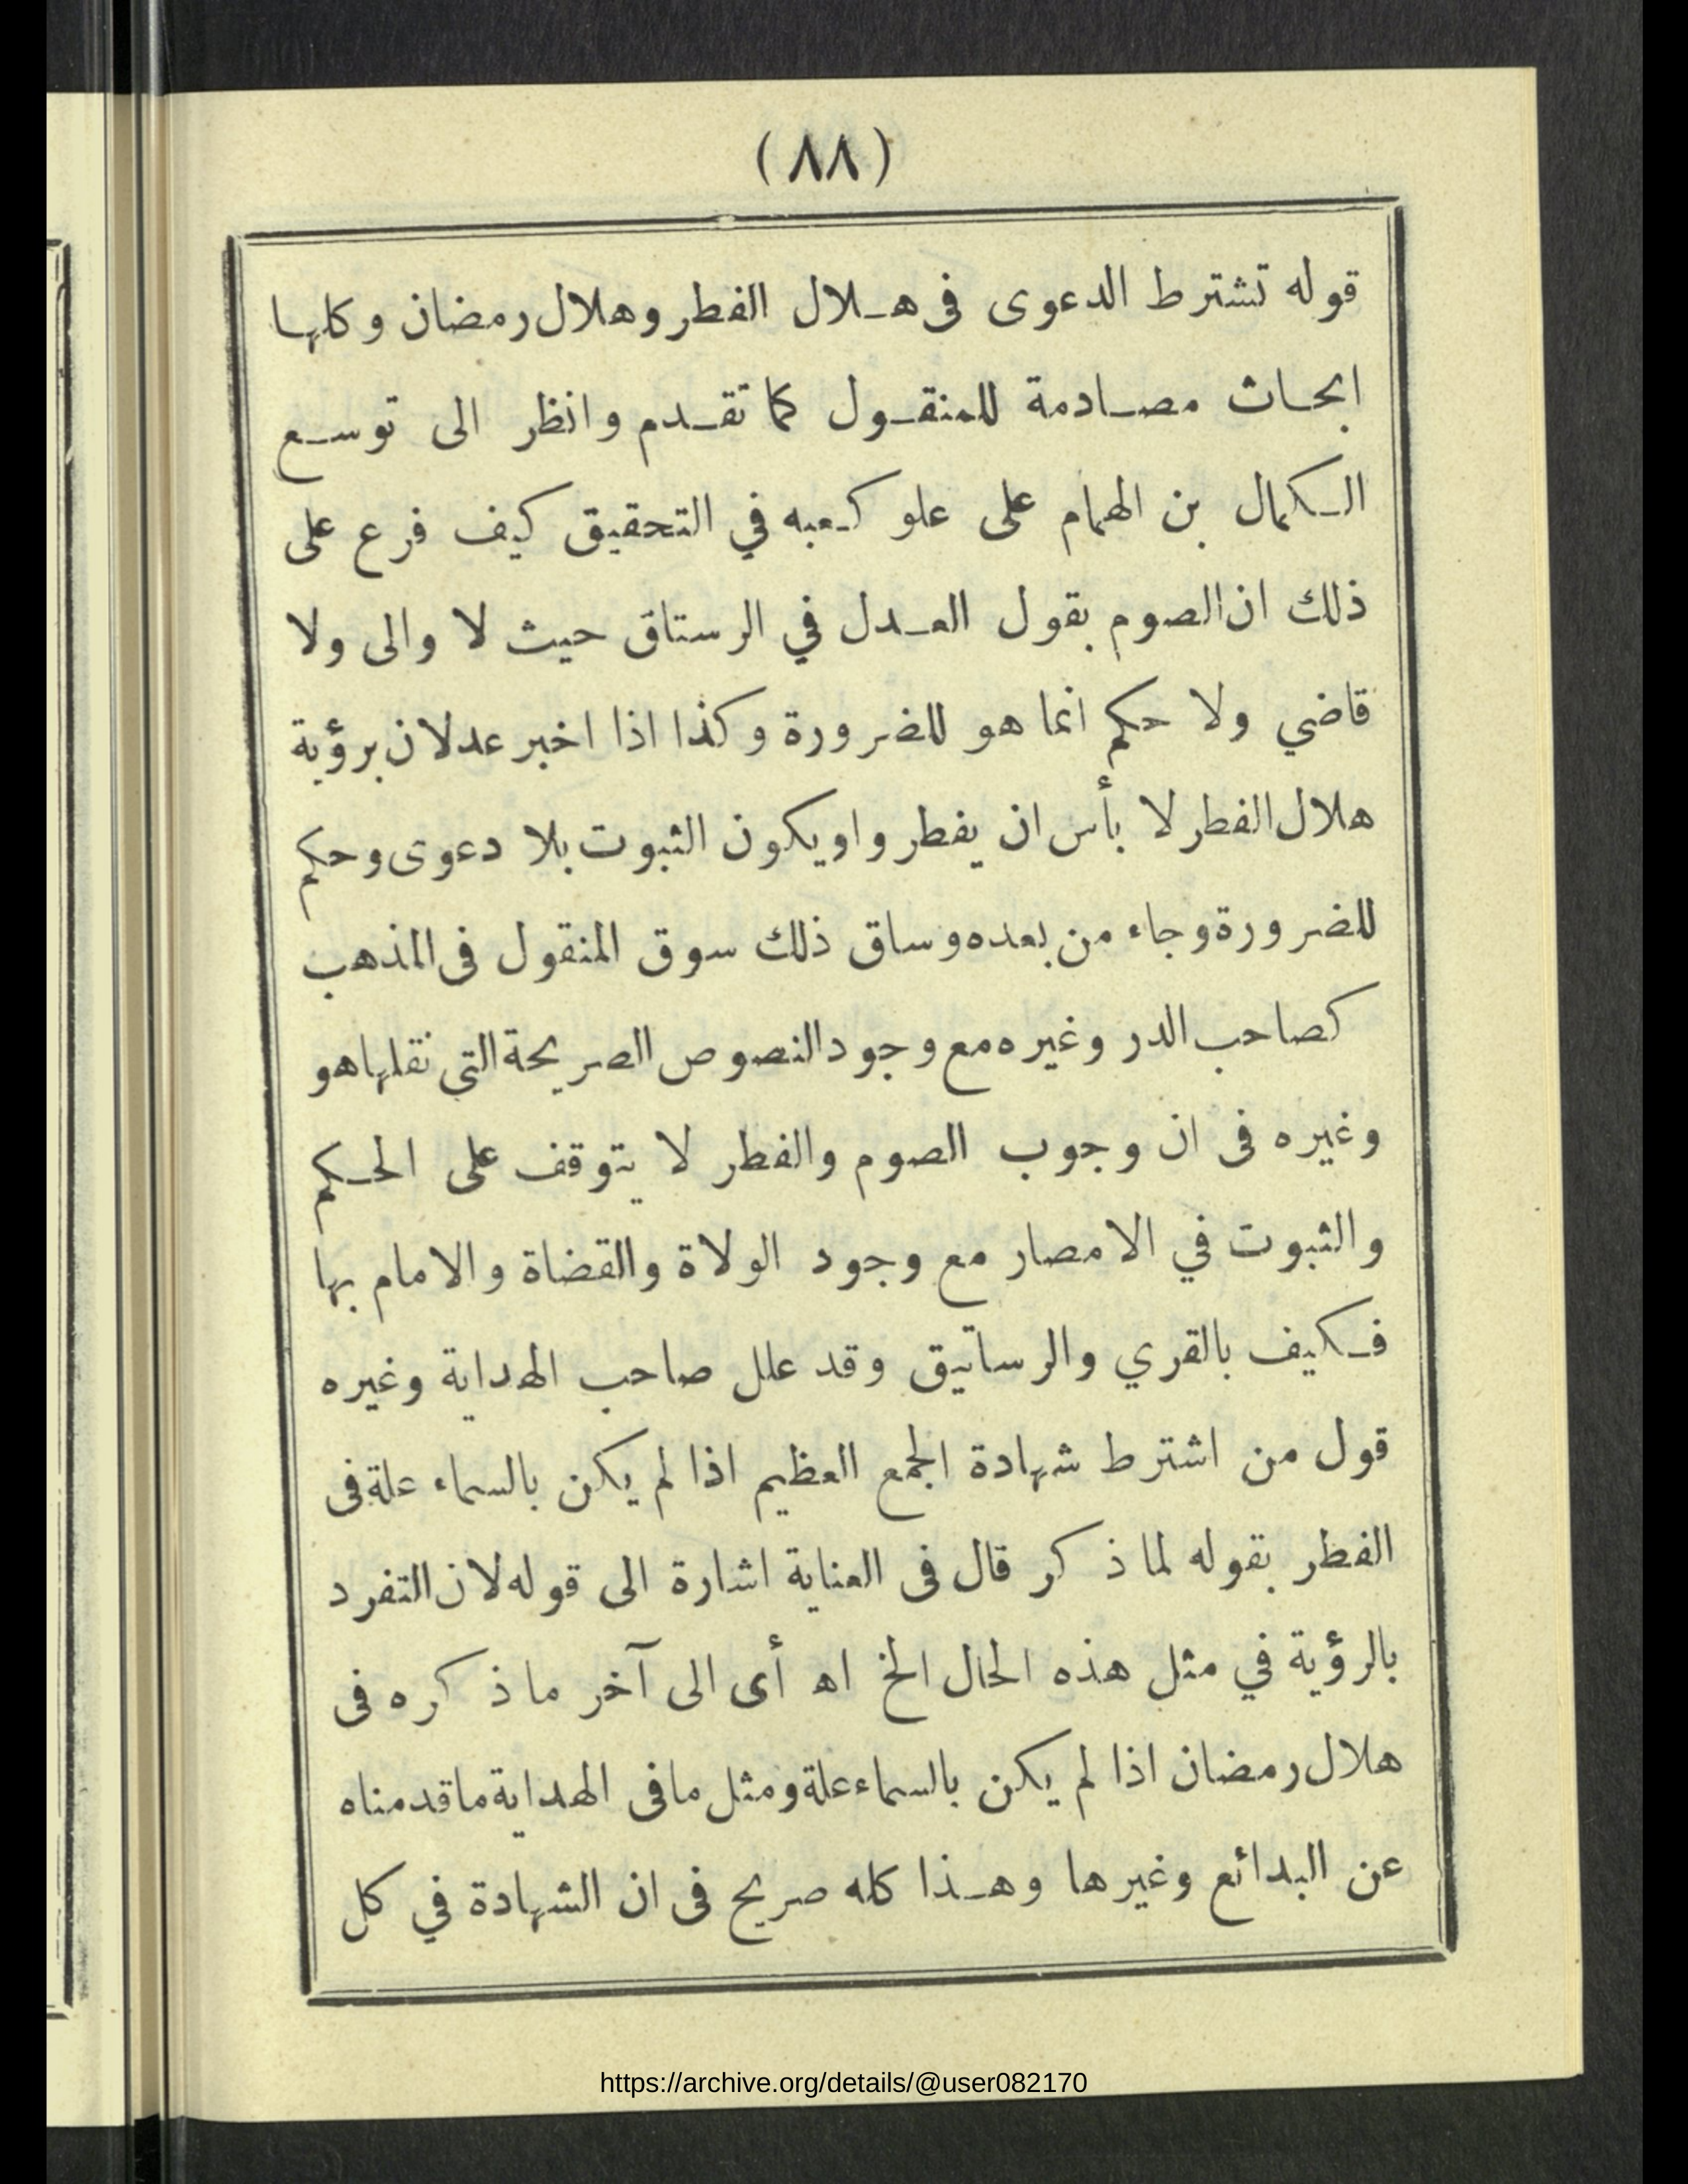 (٨٨)
قوله تشترط الدعوى فى هلال الفطر وهلال رمضان وكلها
ابحاث مصادمة للمنقول كما تقدم وانظر الى توسع
الكمال بن الهمام على علو كعبه في التحقيق كيف فرع على
ذلك ان الصوم بقول العدل في الرستاق حيث لا والى ولا
قاضي ولا حكم انما هو للضرورة وكذا اذا اخبر عدلان برؤية
هلال الفطر لا بأس ان يفطروا ويكون الثبوت بلا دعوى وحكم
للضرورة وجاء من بعده وساق ذلك سوق المنقول فى المذهب
كصاحب الدر وغيره مع وجود النصوص الصريحة التى نقلها هو
وغيره فى ان وجوب الصوم والفطر لا يتوقف على الحكم
والثبوت في الامصار مع وجود الولاة والقضاة والامام بها
فكيف بالقري والرساتيق وقد علل صاحب الهداية وغيره
قول من اشترط شهادة الجمع العظيم اذا لم يكن بالسماء علة فى
الفطر بقوله لما ذكر قال فى العناية اشارة الى قوله لان التفرد
بالرؤية في مثل هذه الحال الخ اه أى الى آخر ما ذكره فى
هلال رمضان اذا لم يكن بالسماء علة ومثل ما فى الهداية ما قدمناه
عن البدائع وغيرها وهذا كله صريح فى ان الشهادة في كل
https://archive.org/details/@user082170